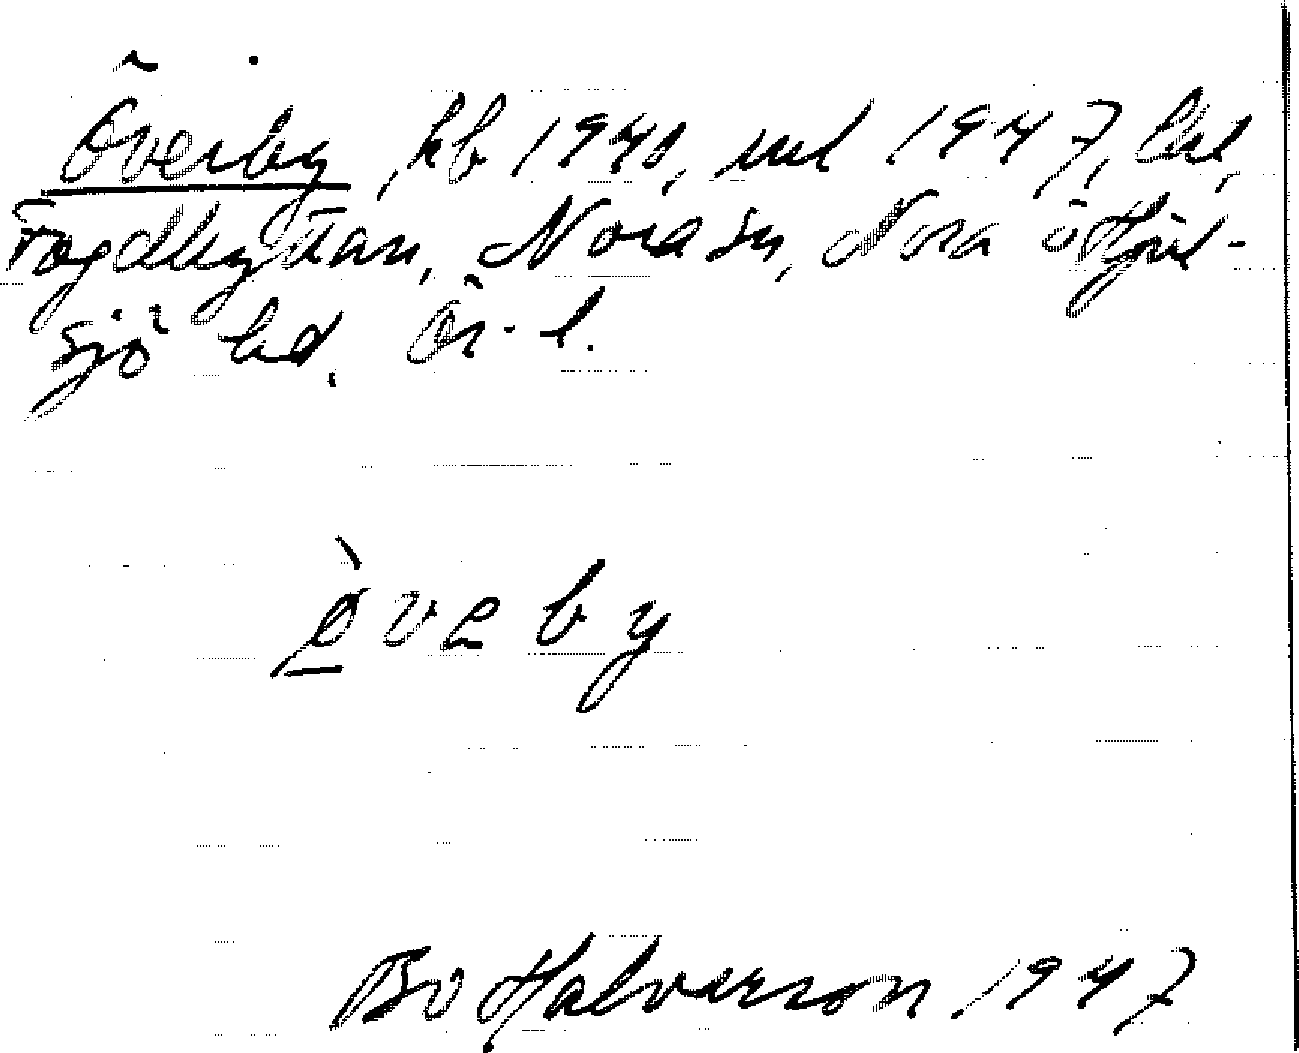 Överby, kb 1940, uul 1947, lht,
Fogdhyttan, Nora sn, Nora ö Hjul-
sjö hd, Ör. l.
ø̀veby
Bo Halvarson 1947